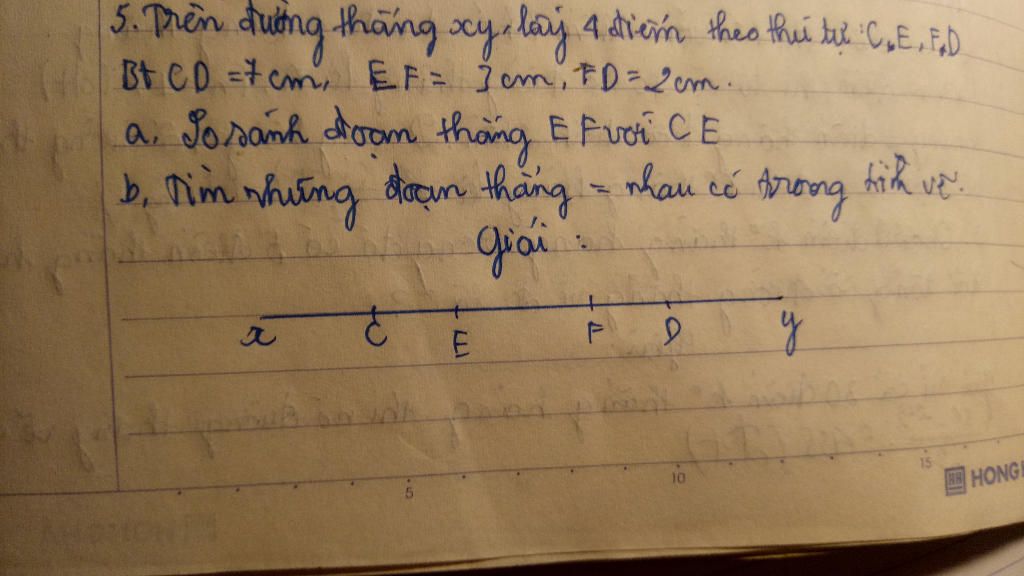 5. Trên đường thẳng xy, lấy 4 điểm theo thứ tự: C, E, F, D
Bt CD = 7 cm, EF = 3 cm, FD = 2 cm.
a, So sánh đoạn thẳng EF với CE
b, Tìm những đoạn thẳng = nhau có trong hình vẽ.
Giải:
x C E F D y
5 10 15
HONG